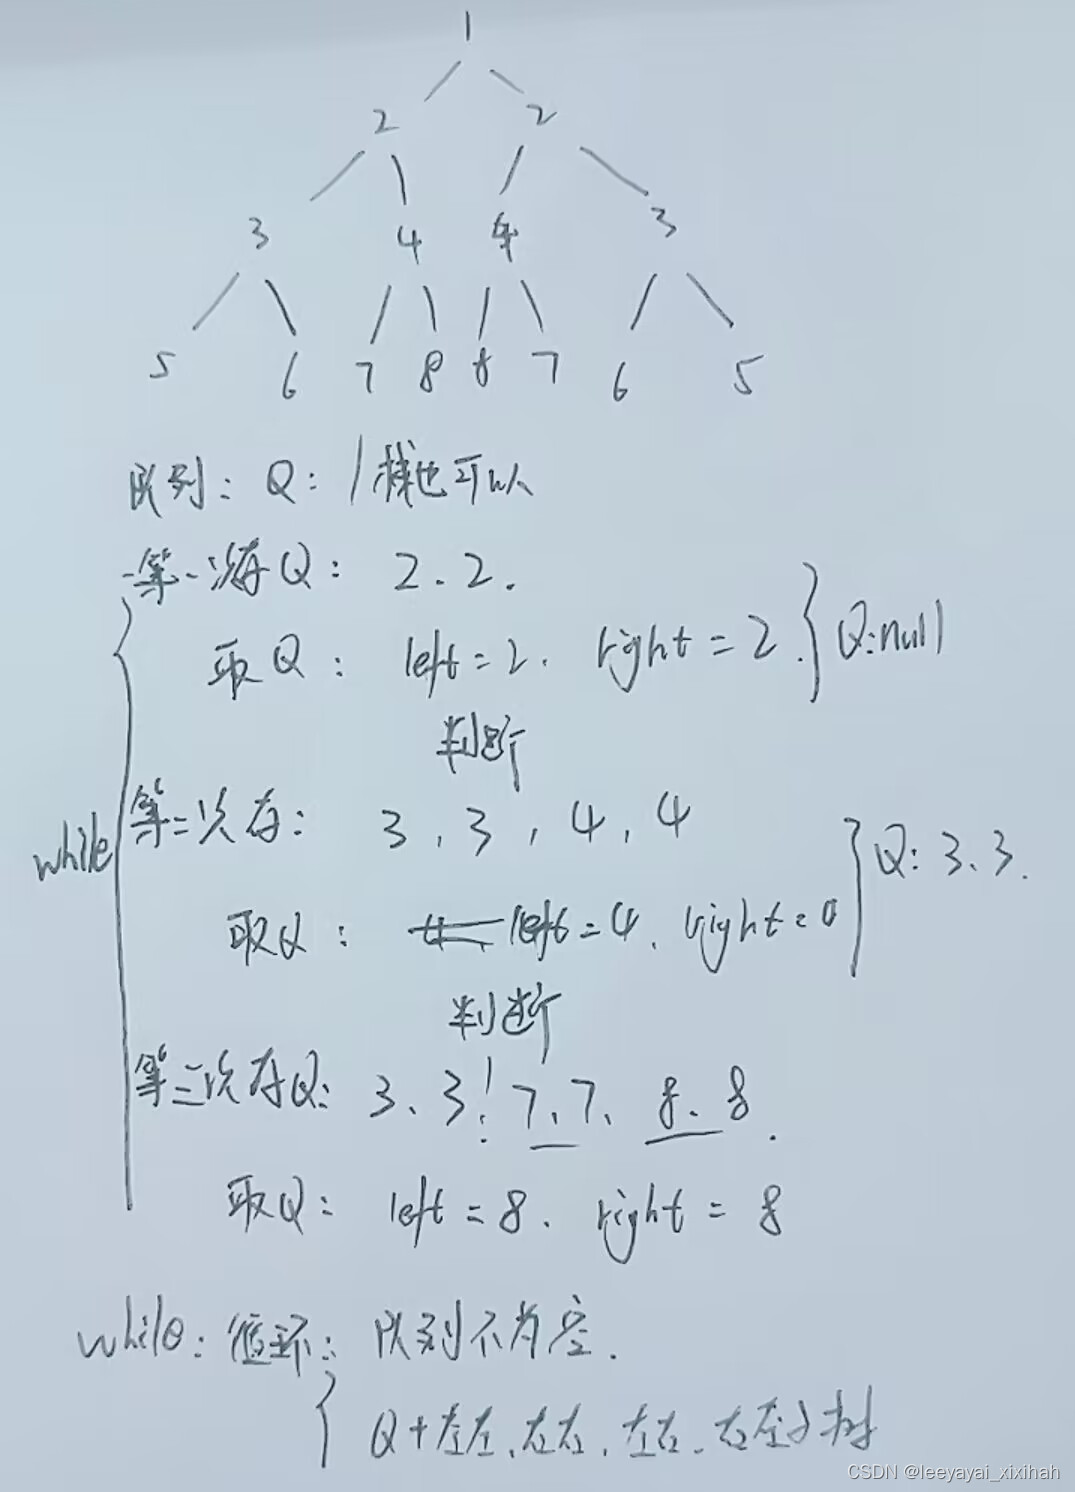 1
2 2
3 4 4 3
5 6 7 8 8 7 6 5
队列: Q: / 栈也可以
第一次存Q: 2. 2.
取Q: left = 2. right = 2. Q:null
判断
第二次存: 3, 3, 4, 4
while
Q: 3、3.
取Q: left = 4. right =
判断
第三次存Q: 3、3 7、7、8、8.
取Q: left = 8. right = 8
while: 循环: 队列不为空.
Q + 左左、右右、左右、右左子树
CSDN @leeyayai_xixihah